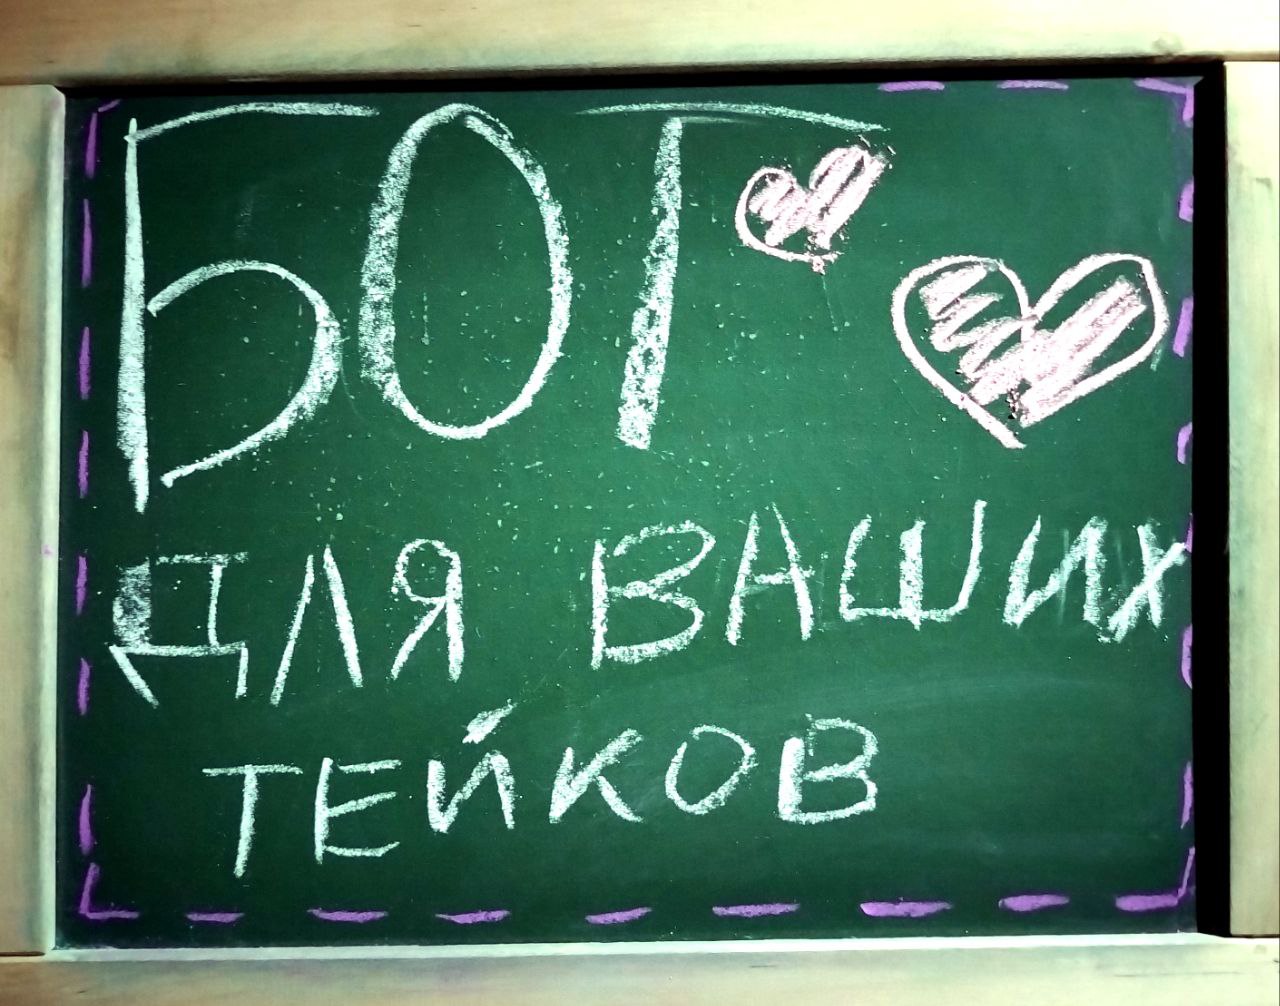 БОТ
ДЛЯ ВАШИХ
ТЕЙКОВ